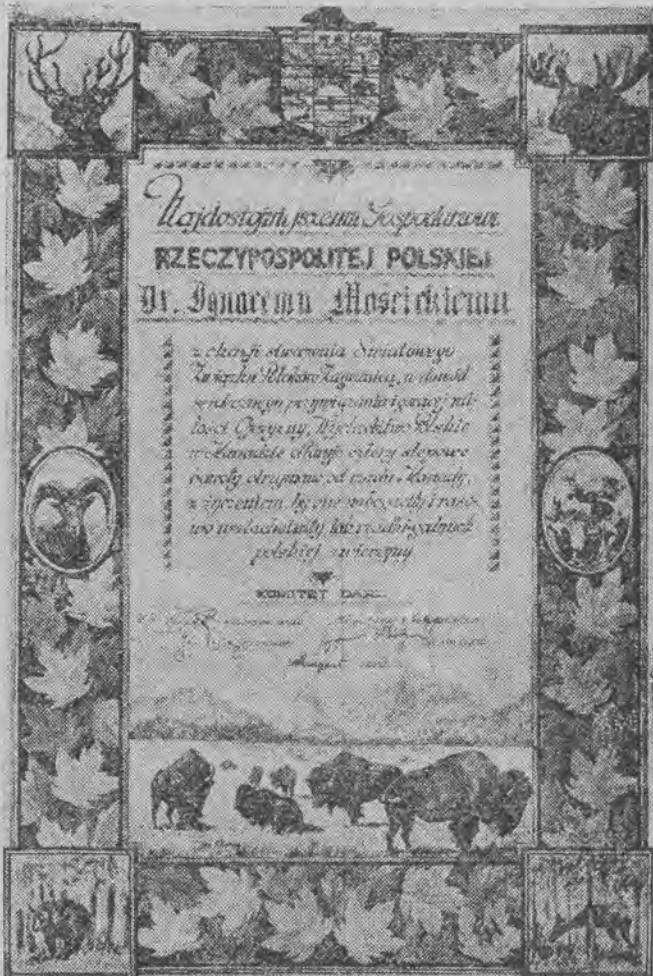 Najdostojniejszemu Gospodarzowi
RZECZYPOSPOLITEJ POLSKIEJ
Dr. Ignacemu Mościckiemu
z okazji stworzenia Światowego
Związku Polaków Zagranicą, w dowód
serdecznego przywiązania i gorącej mi-
łości Ojczyzny, Wychodźtwo Polskie
w Kanadzie ofiaruje cztery stepowe
bawoły otrzymane od rządu Kanady,
z życzeniem, by one wzbogaciły i raso-
wo uszlachetniły tak rzadki gatunek
polskiej zwierzyny
KOMITET DARU